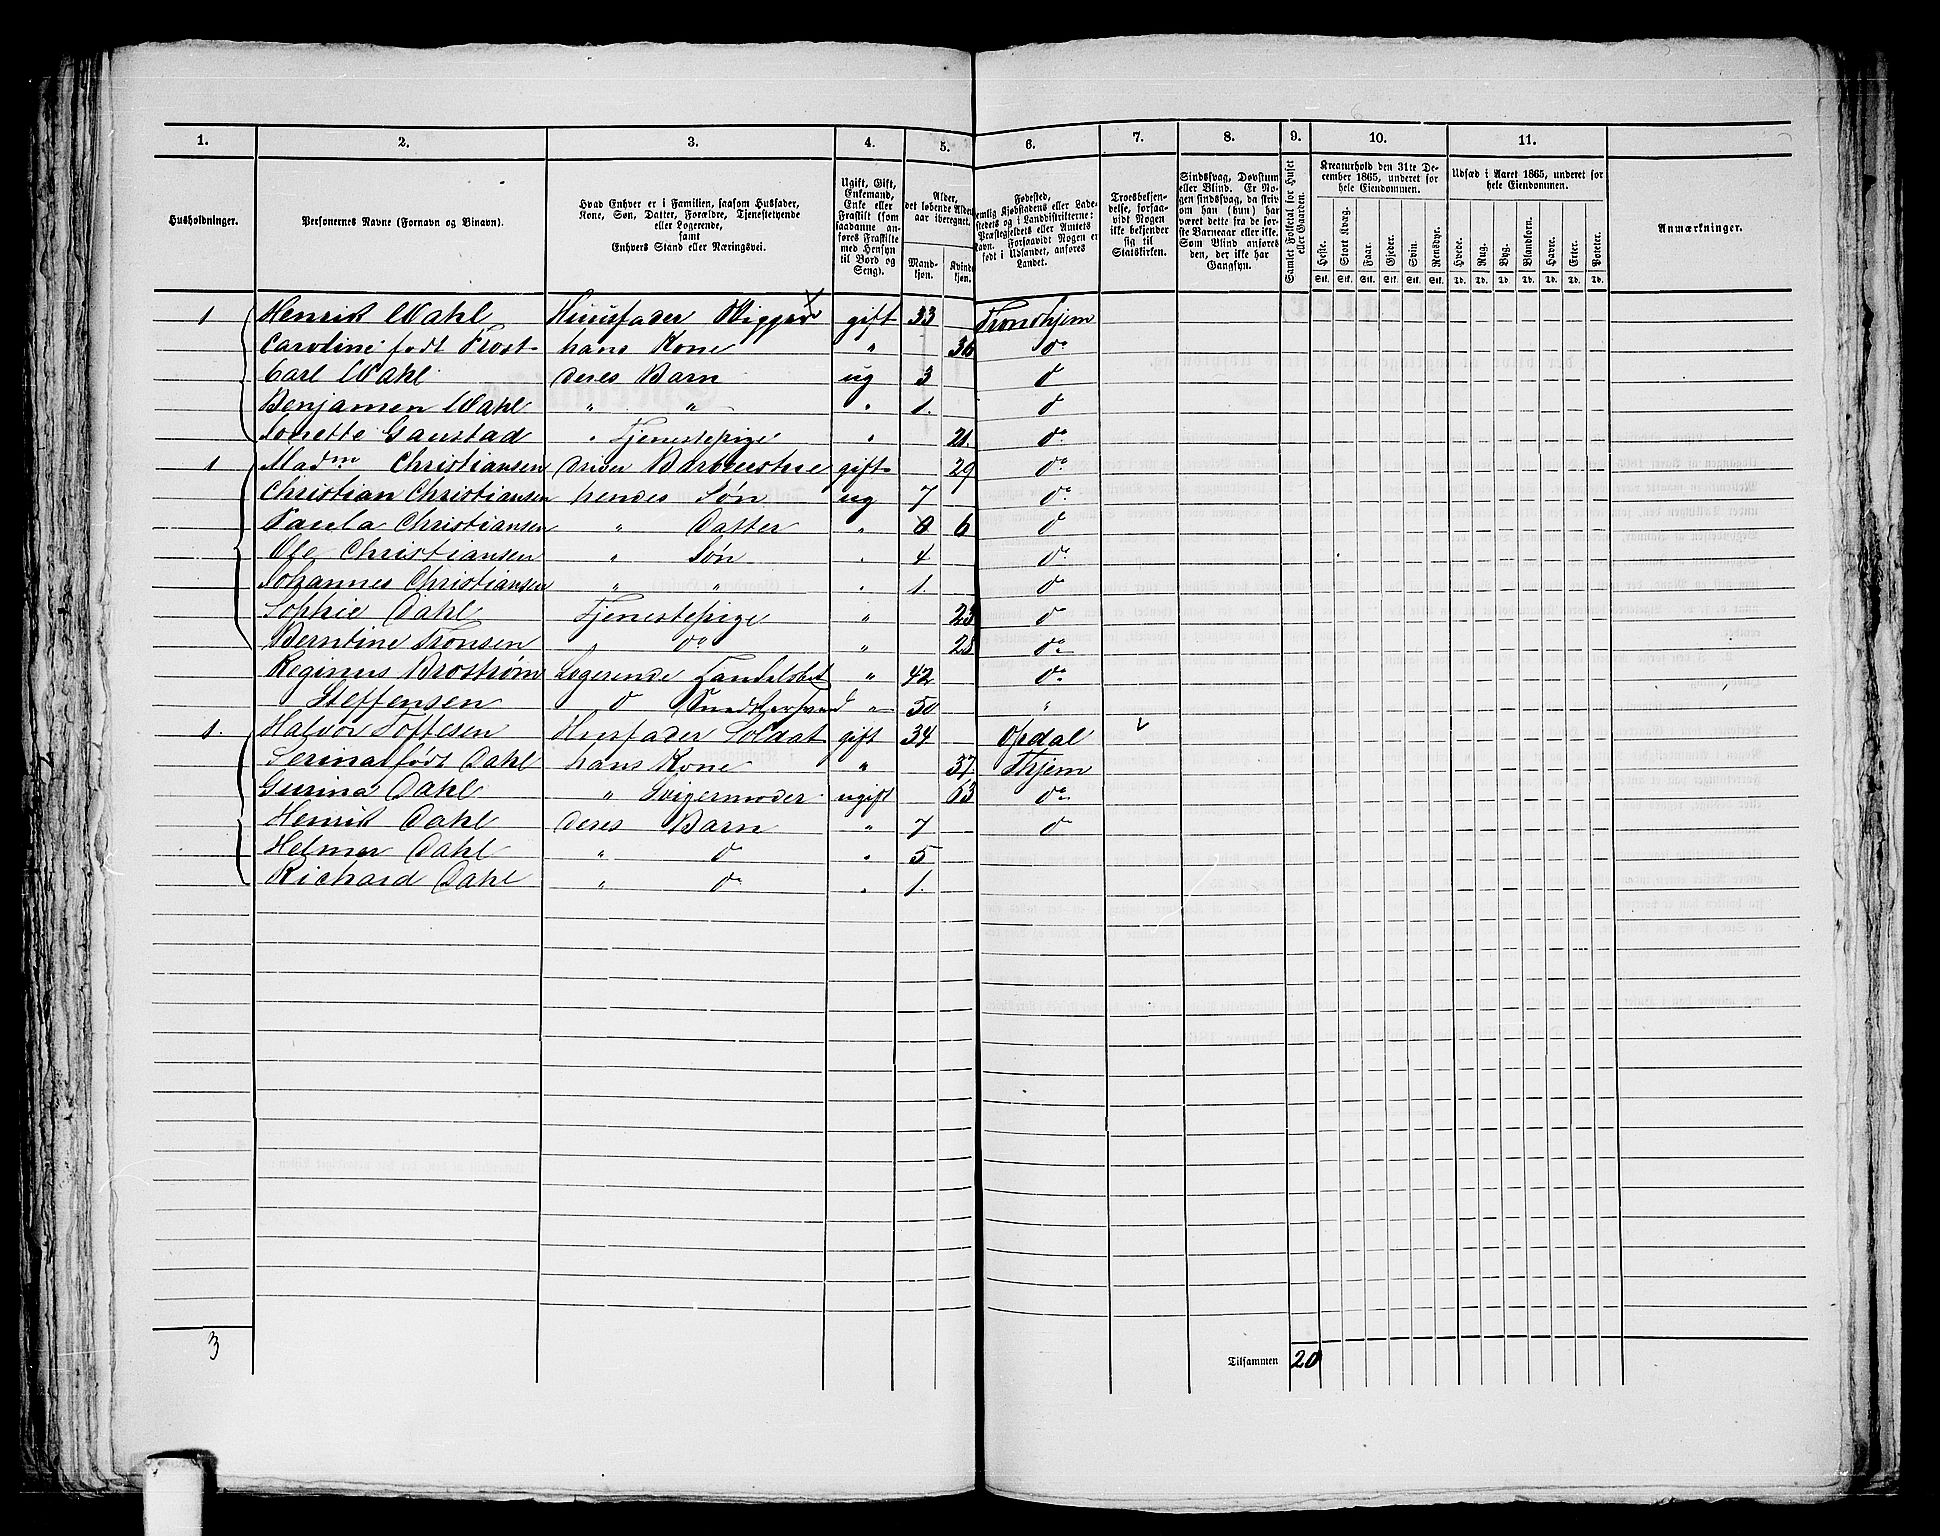 1. 2. 3. 4. 5. 6. 7. 8. 9. 10. 11.
Husholdninger.
Personernes Navne (Fornavn og Binavn).
Hvad Enhver er i Familien, saasom Husfader,
Kone, Søn, Datter, Forældre, Tjenestetyende
eller Logerende,
samt
Enhvers Stand eller Næringsvei.
Ugift, Gift,
Enkemand,
Enke eller
Fraskilt (som
saadanne an-
føres Fraskilte
med Hensyn
til Bord og
Seng).
Alder,
det løbende Alders-
aar iberegnet.
Mand-
kjøn.
Kvinde-
kjøn.
Fødested,
nemlig Kjøbstadens eller Lade-
stedets og i Landdistrikterne:
Præstegjeldets eller Amtets
Navn. Forsaavidt Nogen er
født i Udlandet, anføres
Landet.
Troesbekjen-
delse, forsaa-
vidt Nogen
ikke bekjender
sig til
Statskirken.
Sindssvag, Døvstum
eller Blind. Er No-
gen sindssvag, da skriv
om han (hun) har
været dette fra de før-
ste Barneaar eller ikke.
Som Blind anføres
den, der ikke har
Gangsyn.
Samlet Folketal for Huset
eller Gaarden.
Kreaturhold den 31te De-
cember 1865, underet for
hele Eiendommen.
Heste. Stort Kvæg. Faar. Gjeder. Svin. Rensdyr.
Stk. Stk. Stk. Stk. Stk. Stk.
Udsæd i Aaret 1865, underet for
hele Eiendommen.
Hvede. Rug. Byg. Blandkorn. Havre. Erter. Poteter.
Td. Td. Td. Td. Td. Td. Td.
Anmærkninger.
1 Henrik Wahl Huusfader gift 33 Trondhjem
Caroline født Frost hans Kone " 36 do
Carl Wahl deres Barn ug 3 do
Benjamen Wahl " " " 1. do
Gaustad " Tjenestepige " 21. do
1 Madm Christiansen gift 29 do
Christian Christiansen hendes Søn ug 7 do
Paula Christiansen " Datter " 6 do
Ole Christiansen " Søn " 4 do
Johannes Christiansen " " " 1. do
Sophie Dahl Tjenestepige " 23 do
Berntine Tronsen do " 28 do
Reginus Brostrøm Logerende " 42 do
Steffensen do " 50 "
1. Halvor Toftesen Husfader Soldat gift 34 Opdal
Serina født Dahl hans Kone " 37 Thjem
Gurina Dahl " Svigermoder ugift 63 do
Henrik Dahl deres Barn " 7 do
Helmer Dahl " do " 5
Richard Dahl " do " 1.
3
Tilsammen 20